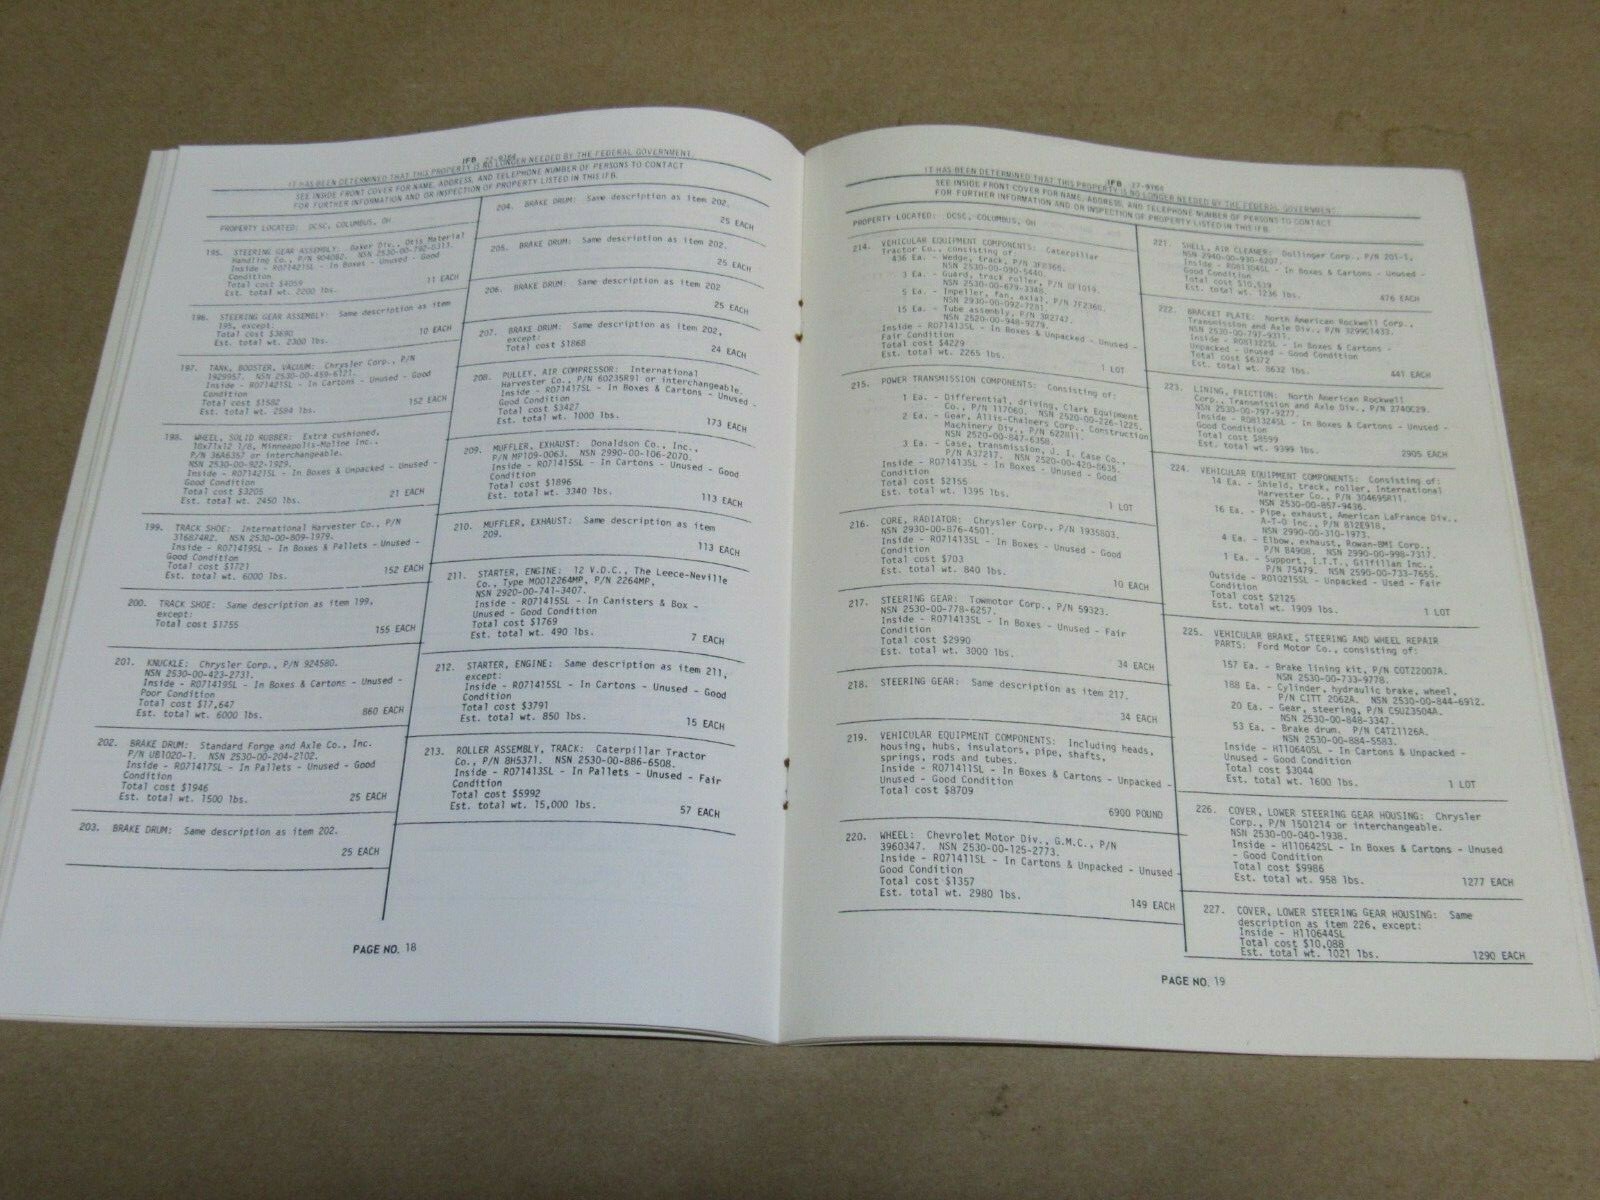 IFB 27-9164
IT HAS BEEN DETERMINED THAT THIS PROPERTY IS NO LONGER NEEDED BY THE FEDERAL GOVERNMENT.
SEE INSIDE FRONT COVER FOR NAME, ADDRESS, AND TELEPHONE NUMBER OF PERSONS TO CONTACT
FOR FURTHER INFORMATION AND OR INSPECTION OF PROPERTY LISTED IN THIS IFB.
PROPERTY LOCATED: DCSC, COLUMBUS, OH
195. STEERING GEAR ASSEMBLY: Baker Div., Otis Material
Handling Co., P/N 904082. NSN 2530-00-792-0313.
Inside - R071421SL - In Boxes - Unused - Good
Condition
Total cost $4059
Est. total wt. 2200 lbs.
11 EACH
196. STEERING GEAR ASSEMBLY: Same description as item
195, except:
Total cost $3690
Est. total wt. 2300 lbs.
10 EACH
197. TANK, BOOSTER, VACUUM: Chrysler Corp., P/N
1929957. NSN 2530-00-459-6121.
Inside - R071421SL - In Cartons - Unused - Good
Condition
Total cost $1582
Est. total wt. 2584 lbs.
152 EACH
198. WHEEL, SOLID RUBBER: Extra cushioned,
10x71x12 1/8, Minneapolis-Moline Inc.,
P/N 36A6357 or interchangeable.
NSN 2530-00-922-1929.
Inside - R071421SL - In Boxes & Unpacked - Unused -
Good Condition
Total cost $3205
Est. total wt. 2450 lbs.
21 EACH
199. TRACK SHOE: International Harvester Co., P/N
316874R2. NSN 2530-00-809-1979.
Inside - R071419SL - In Boxes & Pallets - Unused -
Good Condition
Total cost $1721
Est. total wt. 6000 lbs.
152 EACH
200. TRACK SHOE: Same description as item 199,
except:
Total cost $1755
155 EACH
201. KNUCKLE: Chrysler Corp., P/N 924580.
NSN 2530-00-423-2731.
Inside - R071419SL - In Boxes & Cartons - Unused -
Poor Condition
Total cost $17,647
Est. total wt. 6000 lbs.
860 EACH
202. BRAKE DRUM: Standard Forge and Axle Co., Inc.
P/N UB1020-1. NSN 2530-00-204-2102.
Inside - R071417SL - In Pallets - Unused - Good
Condition
Total cost $1946
Est. total wt. 1500 lbs.
25 EACH
203. BRAKE DRUM: Same description as item 202.
25 EACH
204. BRAKE DRUM: Same description as item 202.
25 EACH
205. BRAKE DRUM: Same description as item 202.
25 EACH
206. BRAKE DRUM: Same description as item 202
25 EACH
207. BRAKE DRUM: Same description as item 202,
except:
Total cost $1868
24 EACH
208. PULLEY, AIR COMPRESSOR: International
Harvester Co., P/N 60235R91 or interchangeable.
Inside - R071417SL - In Boxes & Cartons - Unused -
Good Condition
Total cost $3427
Est. total wt. 1000 lbs.
173 EACH
209. MUFFLER, EXHAUST: Donaldson Co., Inc.,
P/N MP109-0063. NSN 2990-00-106-2070.
Inside - R071415SL - In Cartons - Unused - Good
Condition
Total cost $1896
Est. total wt. 3340 lbs.
113 EACH
210. MUFFLER, EXHAUST: Same description as item
209.
113 EACH
211. STARTER, ENGINE: 12 V.D.C., The Leece-Neville
Co., Type M0012264MP, P/N 2264MP,
NSN 2920-00-741-3407.
Inside - R071415SL - In Canisters & Box -
Unused - Good Condition
Total cost $1769
Est. total wt. 490 lbs.
7 EACH
212. STARTER, ENGINE: Same description as item 211,
except:
Inside - R071415SL - In Cartons - Unused - Good
Condition
Total cost $3791
Est. total wt. 850 lbs.
15 EACH
213. ROLLER ASSEMBLY, TRACK: Caterpillar Tractor
Co., P/N 8H5371. NSN 2530-00-886-6508.
Inside - R071413SL - In Pallets - Unused - Fair
Condition
Total cost $5992
Est. total wt. 15,000 lbs.
57 EACH
PAGE NO. 18
IFB 27-9164
IT HAS BEEN DETERMINED THAT THIS PROPERTY IS NO LONGER NEEDED BY THE FEDERAL GOVERNMENT.
SEE INSIDE FRONT COVER FOR NAME, ADDRESS, AND TELEPHONE NUMBER OF PERSONS TO CONTACT
FOR FURTHER INFORMATION AND OR INSPECTION OF PROPERTY LISTED IN THIS IFB.
PROPERTY LOCATED: DCSC, COLUMBUS, OH
214. VEHICULAR EQUIPMENT COMPONENTS: Caterpillar
Tractor Co., consisting of:
436 Ea. - Wedge, track, P/N 3F8366.
NSN 2530-00-090-5440.
3 Ea. - Guard, track roller, P/N 8F1019.
NSN 2530-00-679-3348.
5 Ea. - Impeller, fan, axial, P/N 7F2360.
NSN 2930-00-092-7281.
15 Ea. - Tube assembly, P/N 3R2747.
NSN 2520-00-948-9279.
Inside - R071413SL - In Boxes & Unpacked - Unused -
Fair Condition
Total cost $4229
Est. total wt. 2265 lbs.
1 LOT
215. POWER TRANSMISSION COMPONENTS: Consisting of:
1 Ea. - Differential, driving, Clark Equipment
Co., P/N 117060. NSN 2520-00-226-1225.
2 Ea. - Gear, Allis-Chalmers Corp., Construction
Machinery Div., P/N 622811.
NSN 2520-00-847-6358.
3 Ea. - Case, transmission, J. I. Case Co.,
P/N A37217. NSN 2520-00-420-8635.
Inside - R071413SL - In Boxes - Unused - Good
Condition
Total cost $2155
Est. total wt. 1395 lbs.
1 LOT
216. CORE, RADIATOR: Chrysler Corp., P/N 1935803.
NSN 2930-00-876-4501.
Inside - R071413SL - In Boxes - Unused - Good
Condition
Total cost $703
Est. total wt. 840 lbs.
10 EACH
217. STEERING GEAR: Towmotor Corp., P/N 59323.
NSN 2530-00-778-6257.
Inside - R071413SL - In Boxes - Unused - Fair
Condition
Total cost $2990
Est. total wt. 3000 lbs.
34 EACH
218. STEERING GEAR: Same description as item 217.
34 EACH
219. VEHICULAR EQUIPMENT COMPONENTS: Including heads,
housing, hubs, insulators, pipe, shafts,
springs, rods and tubes.
Inside - R071411SL - In Boxes & Cartons - Unpacked -
Unused - Good Condition
Total cost $8709
6900 POUND
220. WHEEL: Chevrolet Motor Div., G.M.C., P/N
3960347. NSN 2530-00-125-2773.
Inside - R071411SL - In Cartons & Unpacked - Unused -
Good Condition
Total cost $1357
Est. total wt. 2980 lbs.
149 EACH
221. SHELL, AIR CLEANER: Dollinger Corp., P/N 201-1,
NSN 2940-00-930-6207.
Inside - R081304SL - In Boxes & Cartons - Unused -
Good Condition
Total cost $10,539
Est. total wt. 1236 lbs.
476 EACH
222. BRACKET PLATE: North American Rockwell Corp.,
Transmission and Axle Div., P/N 3299C1433.
NSN 2530-00-797-9311.
Inside - R081322SL - In Boxes & Cartons -
Unpacked - Unused - Good Condition
Total cost $6372
Est. total wt. 8632 lbs.
441 EACH
223. LINING, FRICTION: North American Rockwell
Corp., Transmission and Axle Div., P/N 2740C29.
NSN 2530-00-797-9277.
Inside - R081324SL - In Boxes & Cartons - Unused -
Good Condition
Total cost $8599
Est. total wt. 9399 lbs.
2905 EACH
224. VEHICULAR EQUIPMENT COMPONENTS: Consisting of:
14 Ea. - Shield, track, roller, International
Harvester Co., P/N 304695R11.
NSN 2530-00-857-9436.
16 Ea. - Pipe, exhaust, American LaFrance Div.,
A-T-O Inc., P/N 812E918.
NSN 2990-00-310-1973.
4 Ea. - Elbow, exhaust, Rowan-BMI Corp.,
P/N 84908. NSN 2990-00-998-7317.
1 Ea. - Support, I.T.T., Gilfillan Inc.,
P/N 75479. NSN 2590-00-733-7655.
Outside - R010215SL - Unpacked - Used - Fair
Condition
Total cost $2125
Est. total wt. 1909 lbs.
1 LOT
225. VEHICULAR BRAKE, STEERING AND WHEEL REPAIR
PARTS: Ford Motor Co., consisting of:
157 Ea. - Brake lining kit, P/N COTZ2007A.
NSN 2530-00-733-9778.
188 Ea. - Cylinder, hydraulic brake, wheel,
P/N CITT 2062A. NSN 2530-00-844-6912.
20 Ea. - Gear, steering, P/N C5UZ3504A.
NSN 2530-00-848-3347.
53 Ea. - Brake drum. P/N C4TZ1126A.
NSN 2530-00-884-5583.
Inside - H110640SL - In Cartons & Unpacked -
Unused - Good Condition
Total cost $3044
Est. total wt. 1600 lbs.
1 LOT
226. COVER, LOWER STEERING GEAR HOUSING: Chrysler
Corp., P/N 1501214 or interchangeable.
NSN 2530-00-040-1938.
Inside - H110642SL - In Boxes & Cartons - Unused
- Good Condition
Total cost $9986
Est. total wt. 958 lbs.
1277 EACH
227. COVER, LOWER STEERING GEAR HOUSING: Same
description as item 226, except:
Inside - H110644SL
Total cost $10,088
Est. total wt. 1021 lbs.
1290 EACH
PAGE NO. 19